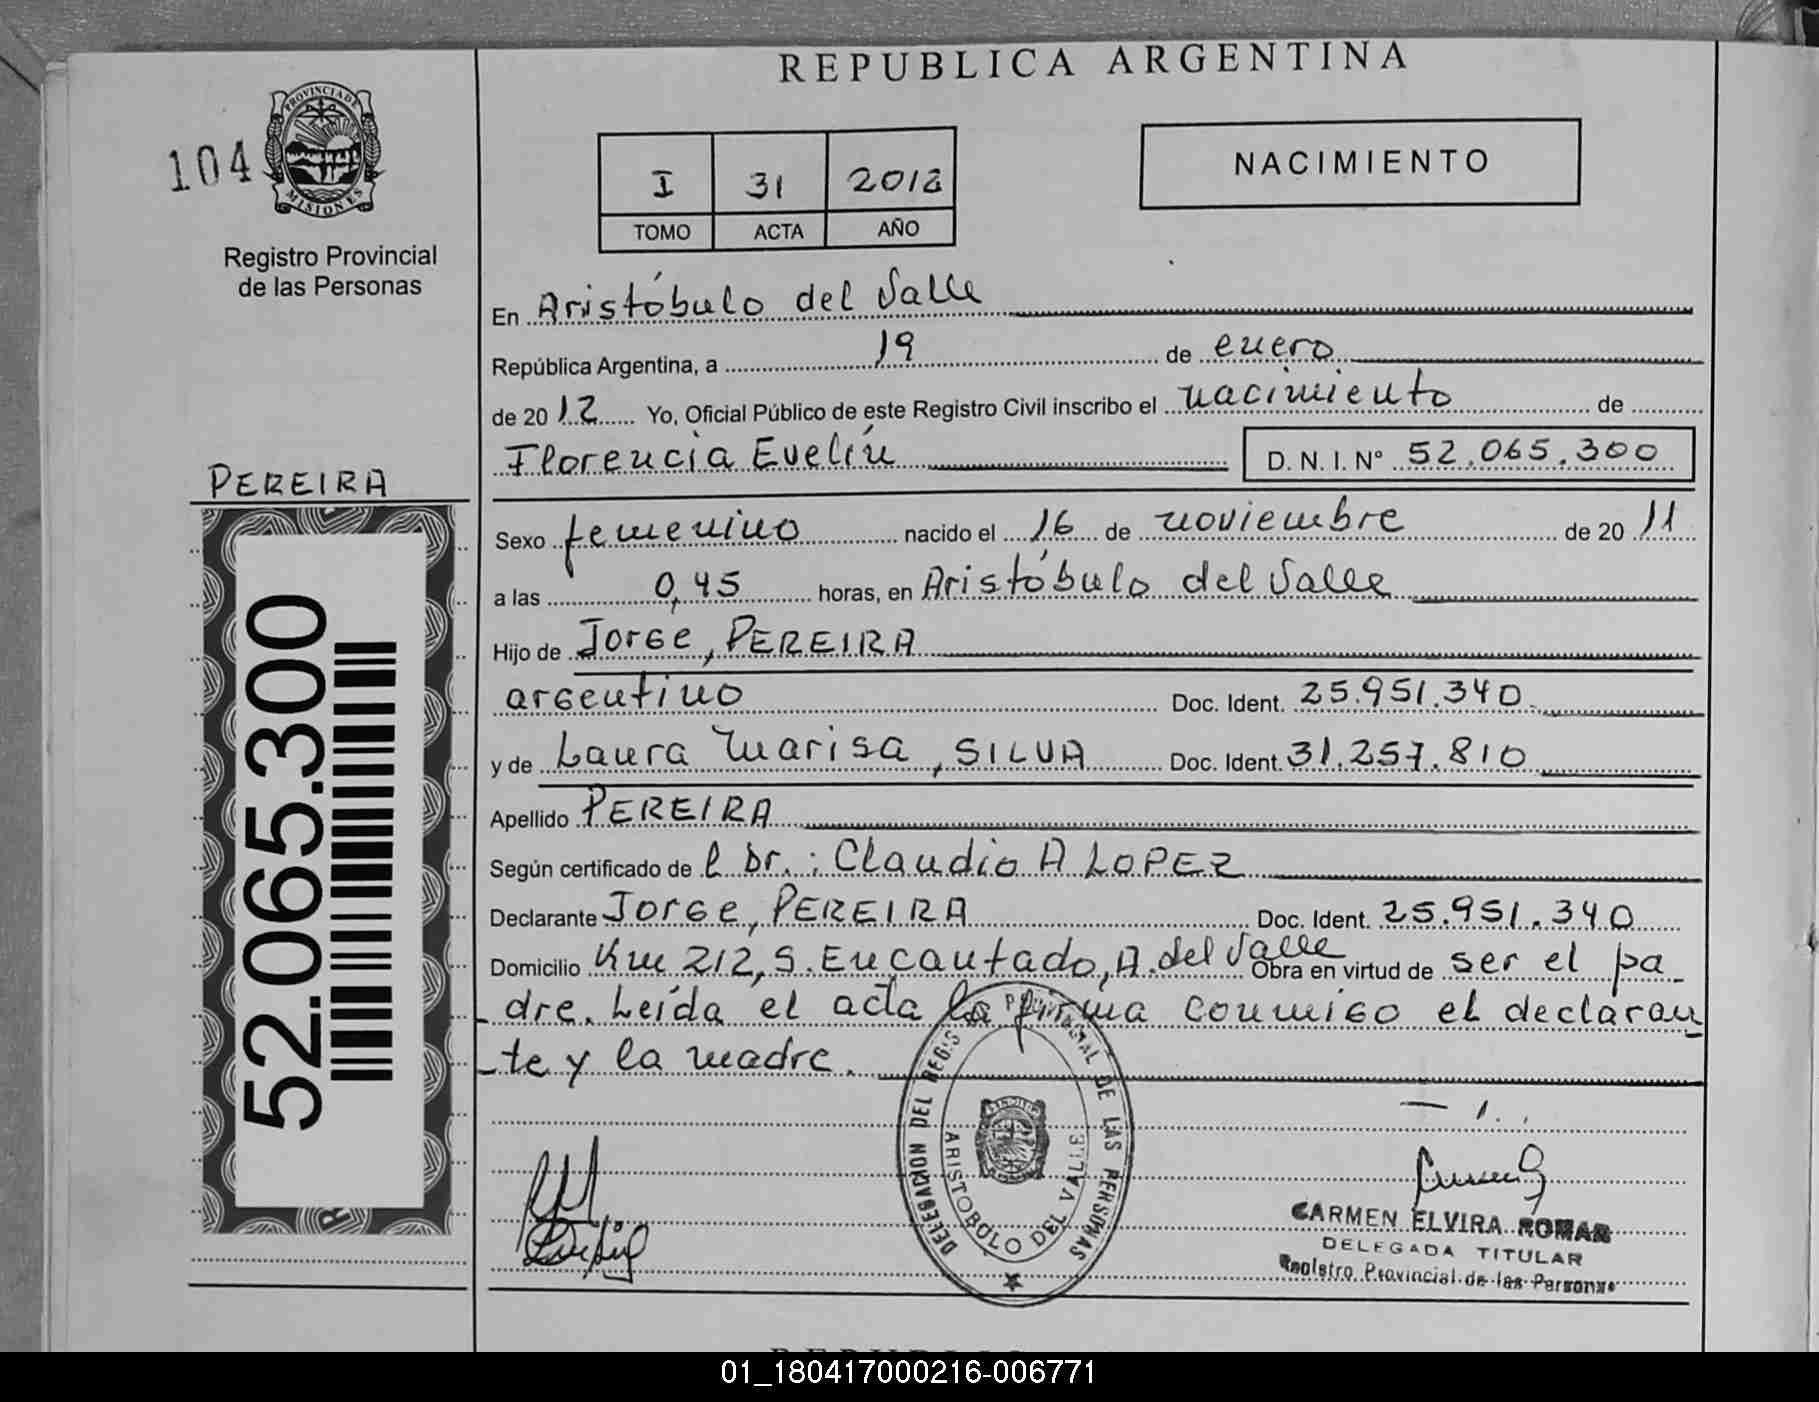 REPUBLICA ARGENTINA
104
PROVINCIA DE
MISIONES
Registro Provincial
de las Personas
I 31 2012
TOMO ACTA AÑO
NACIMIENTO
En Aristóbulo del Valle
República Argentina, a 19 de enero
de 2012 Yo, Oficial Público de este Registro Civil inscribo el nacimiento de
Florencia Evelín D. N. I. Nº 52.065.300
PEREIRA
52.065.300
Sexo femenino nacido el 16 de noviembre de 2011
a las 0,45 horas, en Aristóbulo del Valle
Hijo de Jorge, PEREIRA
argentino Doc. Ident. 25.951.340
y de Laura Marisa, SILVA Doc. Ident. 31.257.810
Apellido PEREIRA
Según certificado de l Dr.: Claudio A LOPEZ
Declarante Jorge, PEREIRA Doc. Ident. 25.951.340
Domicilio Km 212, S. Encantado, A. del Valle Obra en virtud de ser el pa_
_dre. Leída el acta la firma conmigo el declaran_
_te y la madre.
DELEGACION DEL REGIS PROVINCIAL DE LAS PERSONAS
ARISTOBULO DEL VALLE
CARMEN ELVIRA ROMAN
DELEGADA TITULAR
Registro Provincial de las Personas
01_180417000216-006771